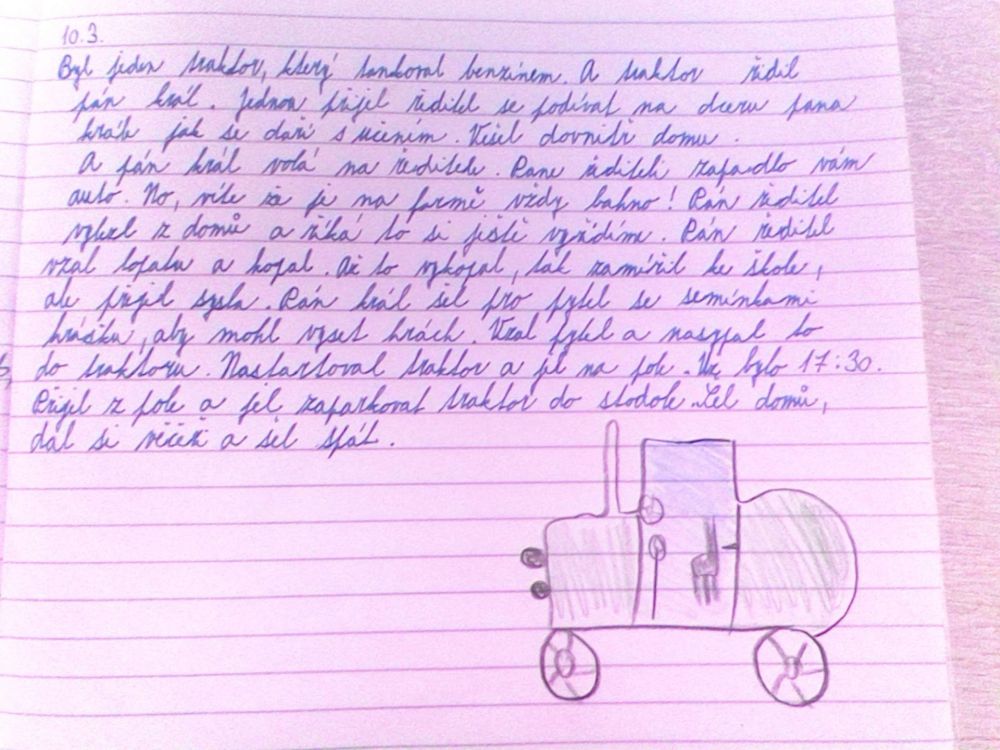 10.3.
Byl jeden traktor, který tankoval benzínem. A traktor řídil
pán král. Jednou přijel ředitel se podívat na dceru pana
krále jak se daří s učením. Vešel dovnitř domu.
A pán král volá na ředitele. Pane řediteli zapadlo vám
auto. No, víte že je na farmě vždy bahno! Pán ředitel
vylezl z domů a říká to si ještě vyřídíme. Pán ředitel
vzal lopatu a kopal. Až to vykopal, tak zaměřil ke škole,
ale přijel
Pán král šel pro pytel se semínkami
hrášku, aby mohl vyset hrách. Vzal pytel a nasypal to
do traktoru. Nastartoval traktor a jel na pole. Už bylo 17:30.
Přijel z pole a jel zaparkovat traktor do stodole. Šel domů,
dal si večeři a šel spát.